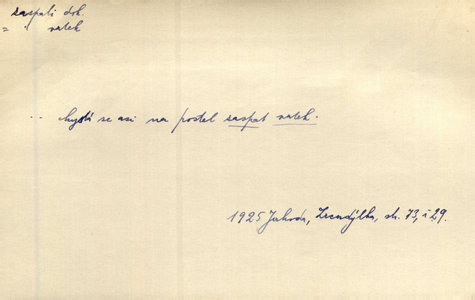 zaspati dok.
= vztek
.. chystá se asi na postel zaspat vztek.
1925 Jahoda, str. 73, ř 29.